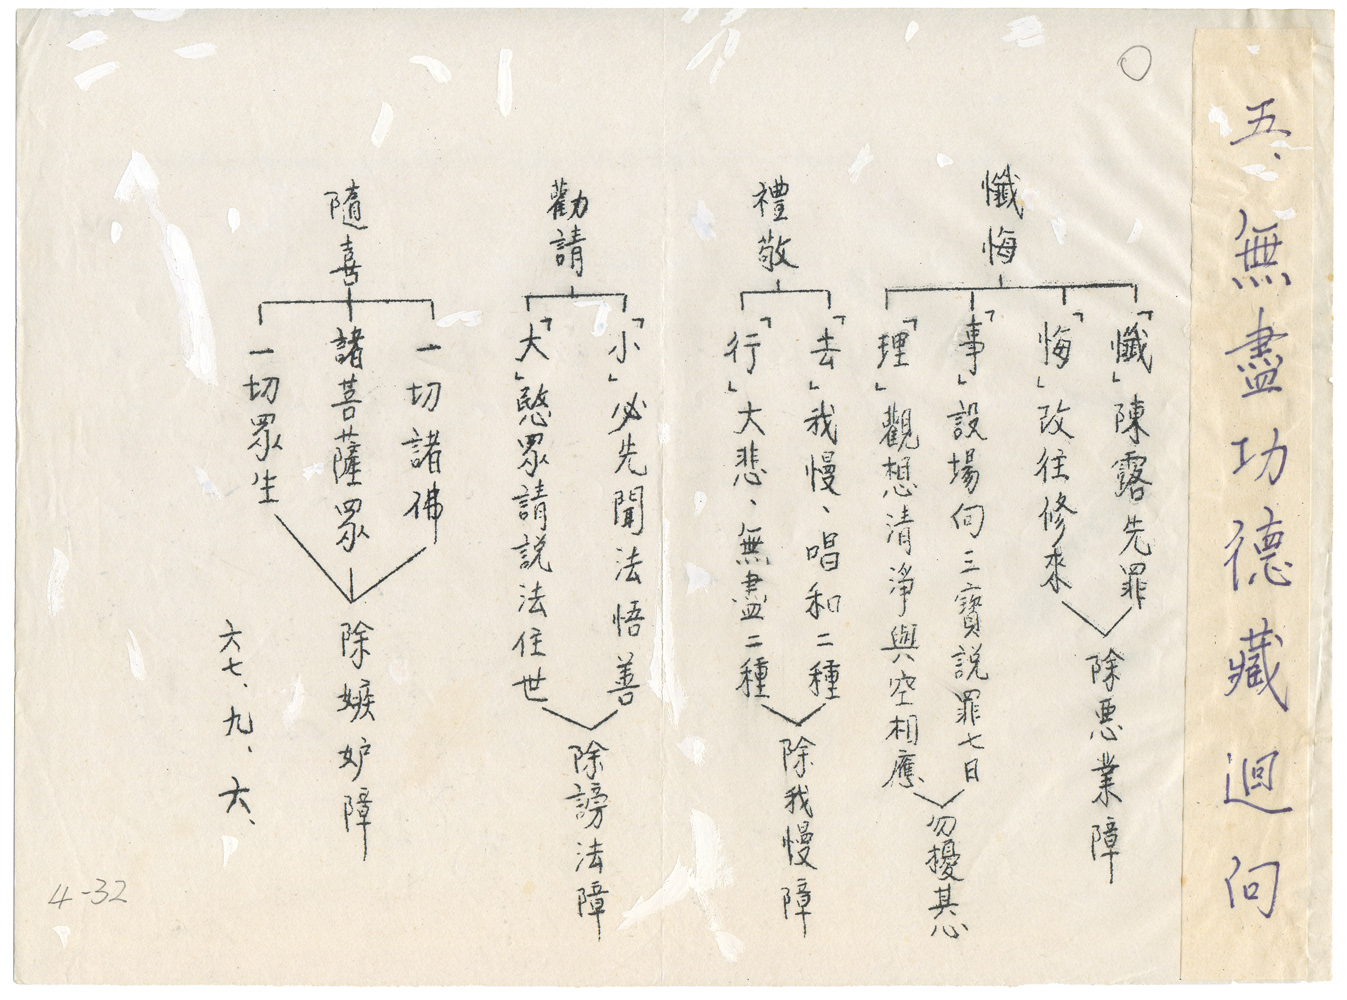 五、無盡功德藏迴向
懺悔
「懺」陳露先罪
「悔」改往修來
除惡業障
「事」設場向三寶說罪七日
「理」觀想清淨與空相應
勿擾其心
禮敬
「去」我慢、唱和二種
「行」大悲、無盡二種
除我慢障
勸請
「小」必先聞法悟善
「大」愍眾請說法住世
除謗法障
隨喜
一切諸佛
諸菩薩眾
一切眾生
除嫉妒障
六七、九、六、
4-32